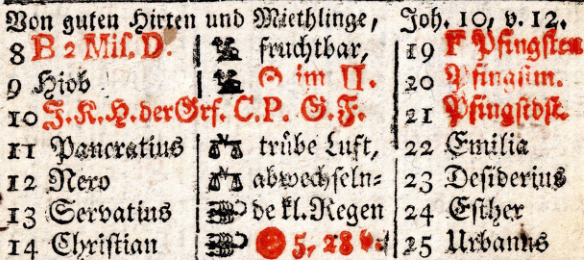 Von guten Hirten und Miethlinge, Joh. 10, v. 12.
8 B 2 Miſ. D. fruchtbar, 19 F Pfingſten
9 Hiob im II. 20 Pfingſtm.
10 J.K.H. der Grf. C.P. G.F. 21 Pfingſtdſt.
11 Pancratius trübe Luft, 22 Emilia
12 Nero abwechſeln- 23 Deſiderius
13 Servatius de kl. Regen 24 Eſther
14 Chriſtian 5, 28 v. 25 Urbanus